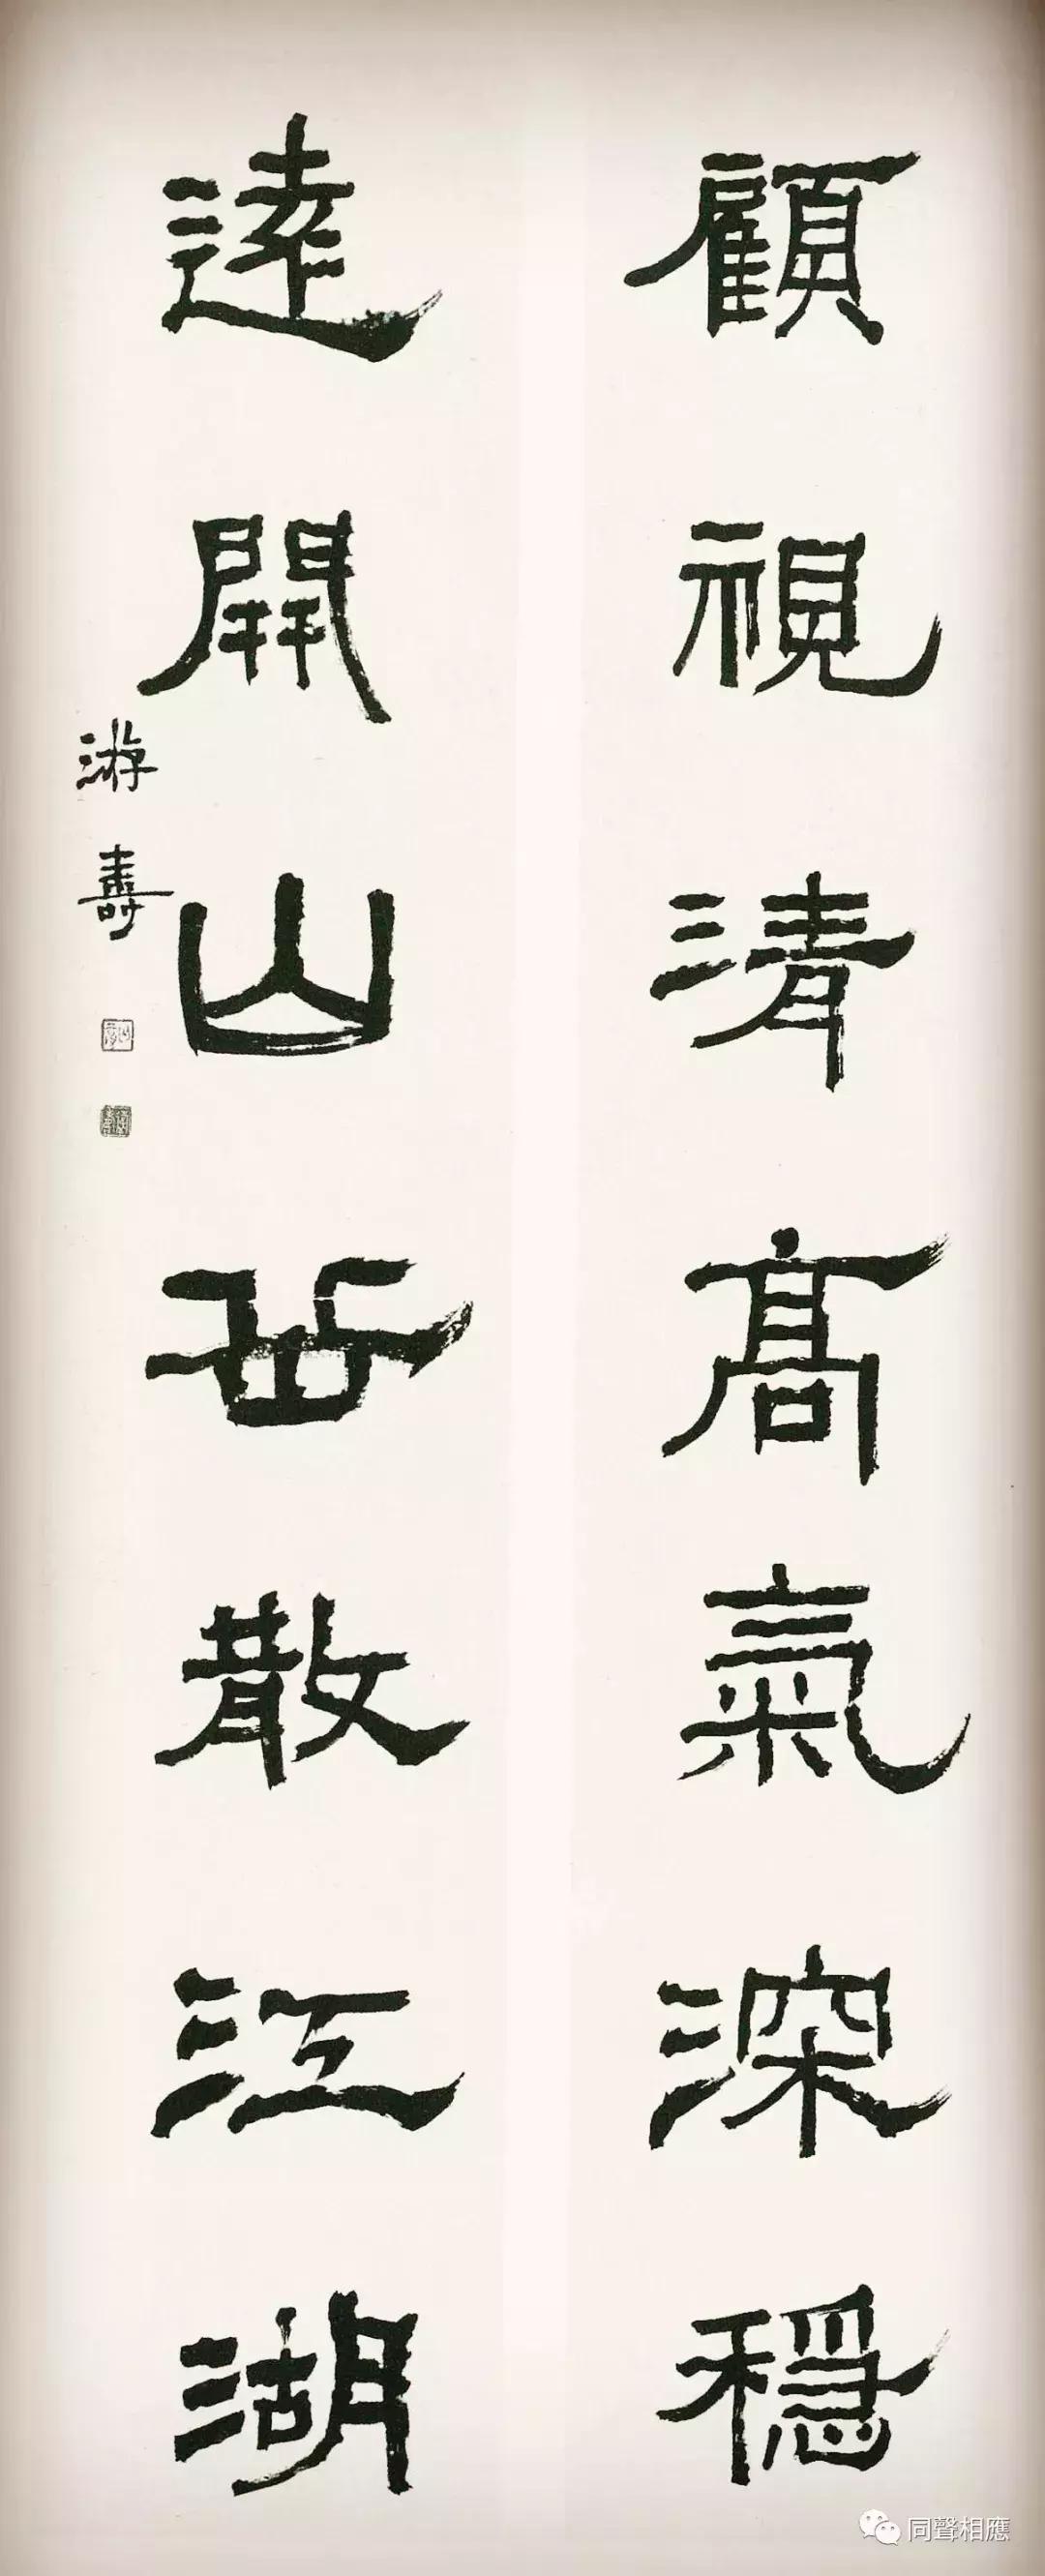 顧視清高氣深穩
開山岳散江湖
游壽
同聲相應